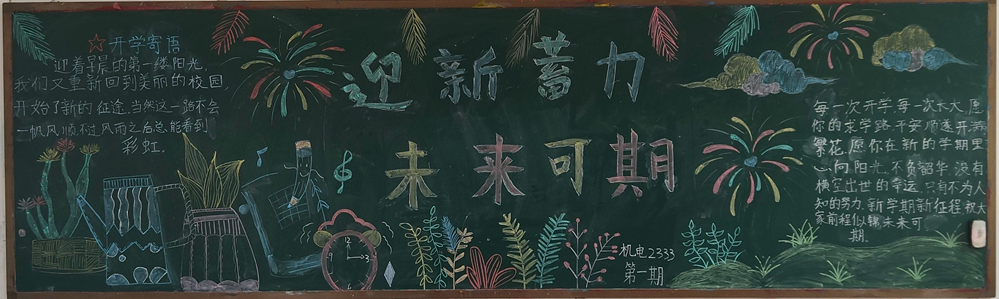 开学寄语
迎着早晨的第一缕阳光,
我们又重新回到美丽的校园,
开始了新的征途,当然这一路不会
一帆风顺,不过风雨之后总能看到
彩虹.
迎新蓄力
未来可期
12
3
9
机电2333
第一期
每一次开学,每一次长大,愿
你的求学路平安顺遂开满
繁花,愿你在新的学期里
一向阳光,不负韶华,没有
横空出世的幸运,只有不为人
知的努力.新学期新征程,祝大
家前程似锦,未来可
期.